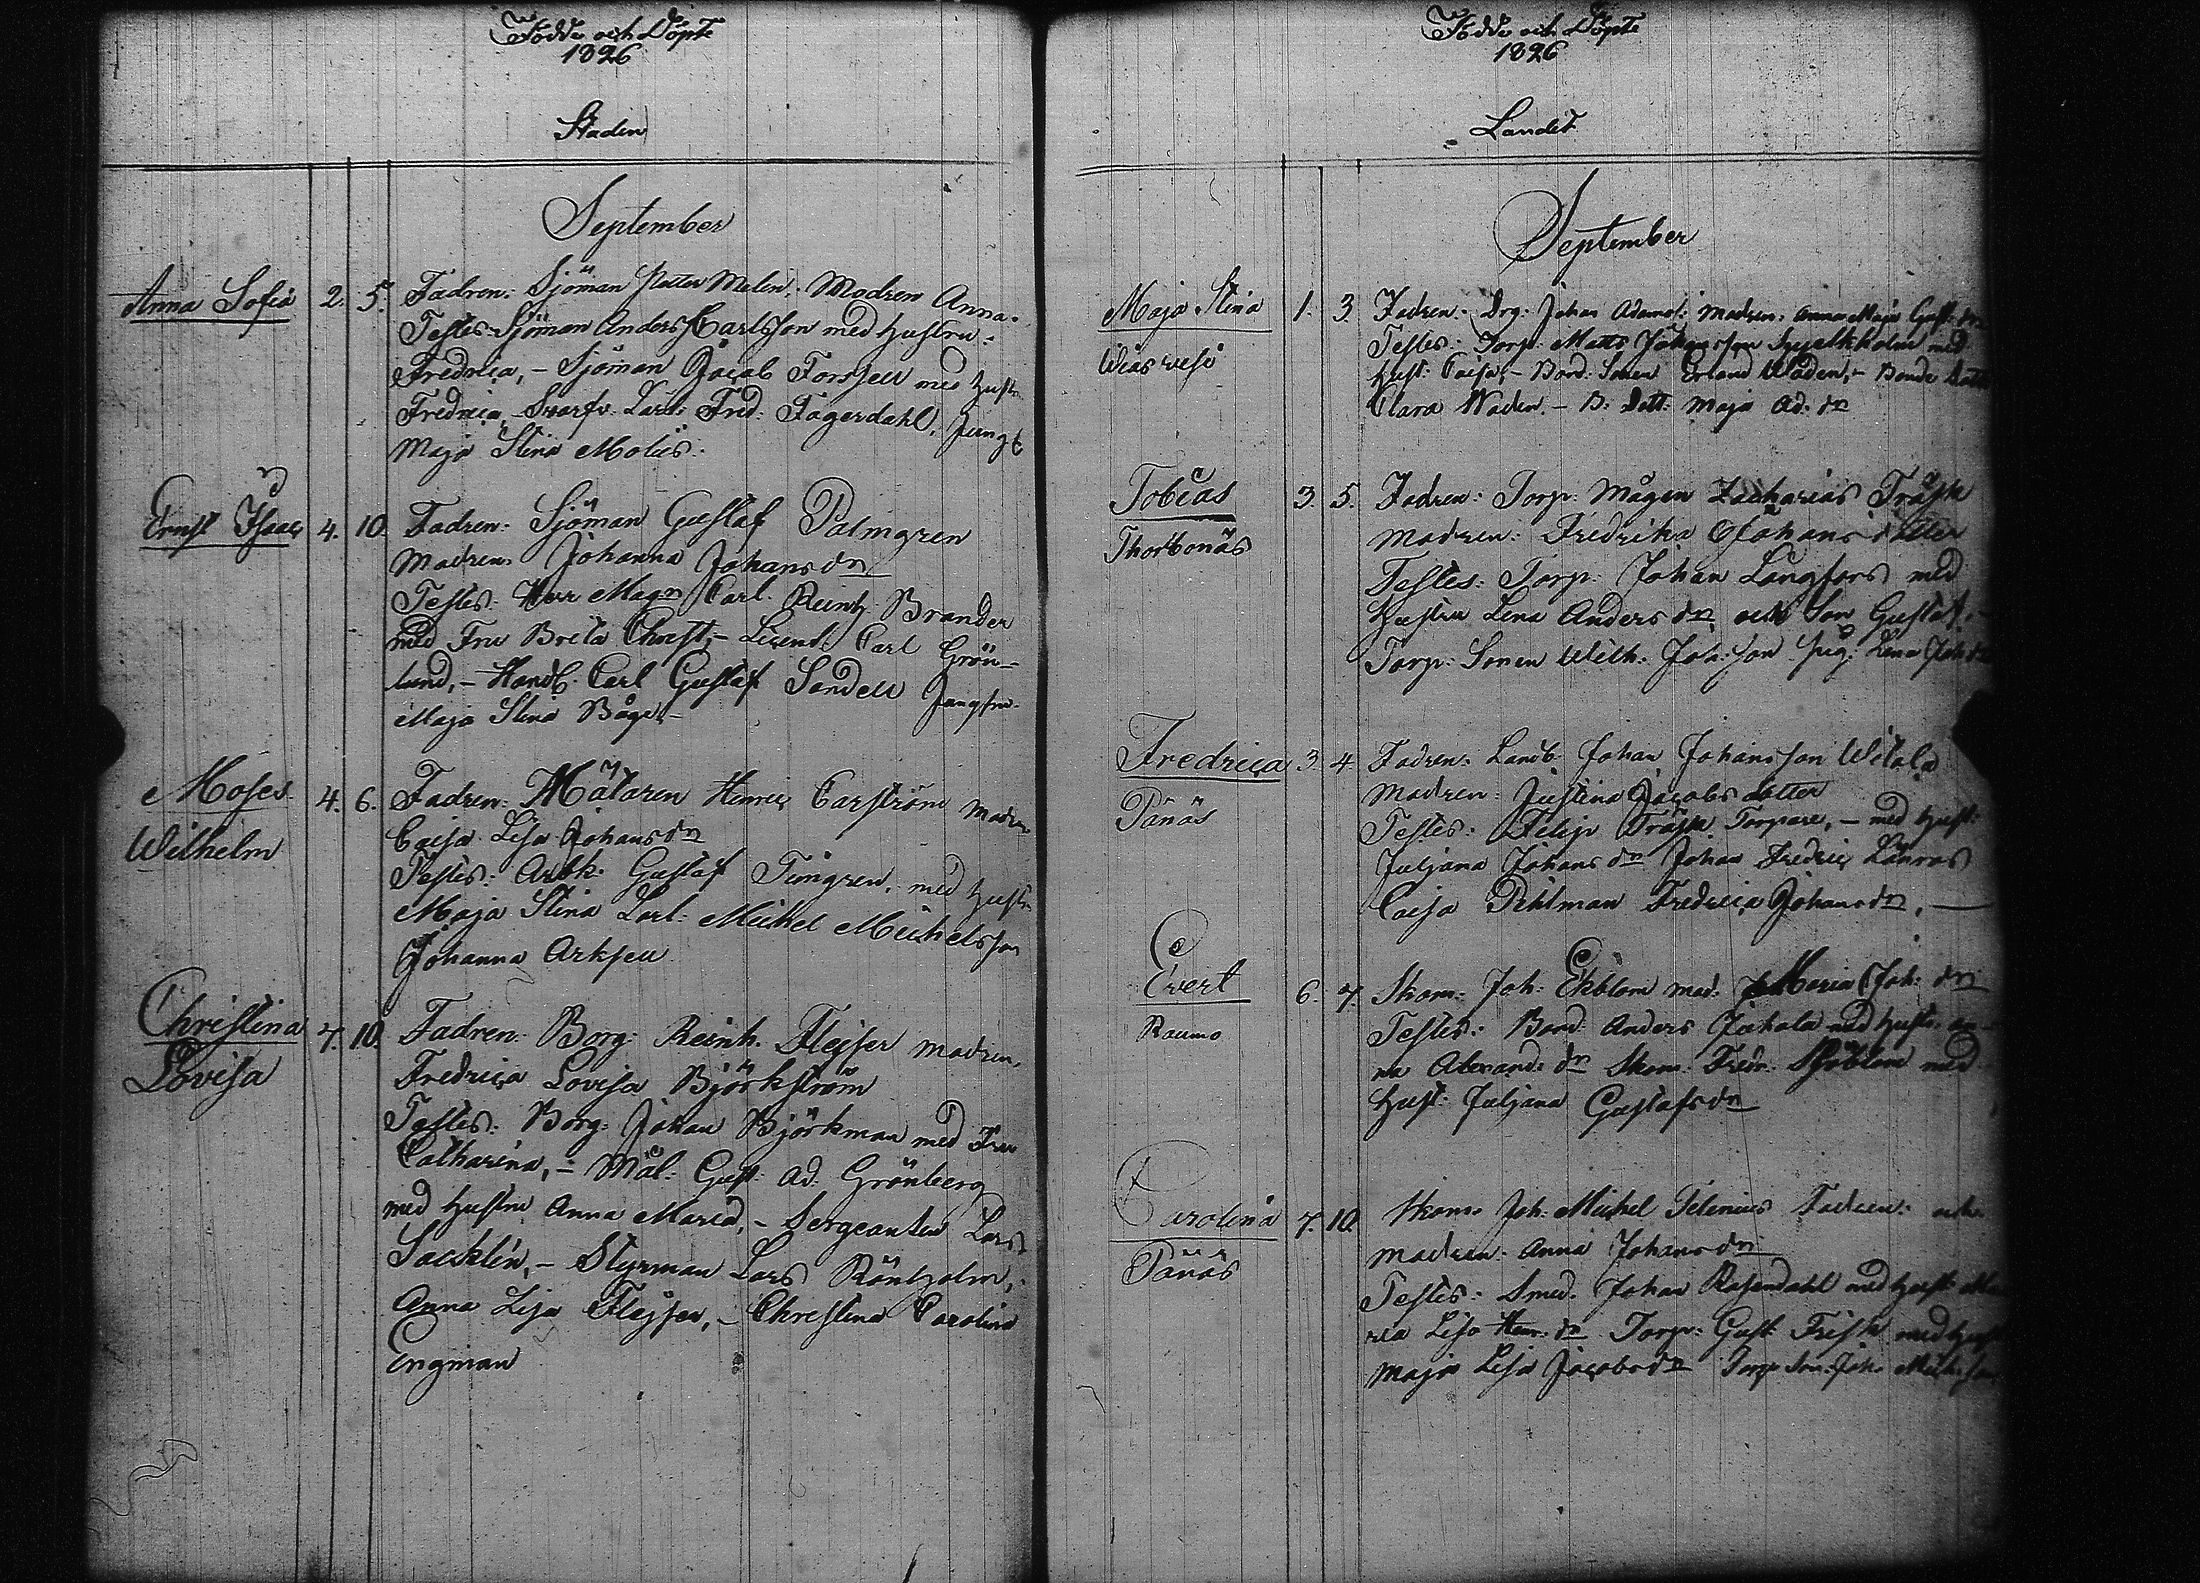 Födde och Döpte
1826
Staden
September
Anna Sofia 2. 5. Fadren: Sjöman Petter Melin. Modren Anna.
Testes: Sjöman Anders Carlsson med Hustru
Fredrica, - Sjöman Jacob Forssell med Hustr.
Fredrica, - Svarfv. Lärl: Fred: Fagerdahl. Jungf.
Maja Stina Molüs.
Ernst Isaac 4. 10. Fadren: Sjöman Gustaf Palmgren
Modren: Johanna Johansdr
Testes: Herr Magr Carl Reinh. Brander
med Fru Brita Christ, - Licent: Carl Grön-
lund, - Handl. Carl Gustaf Sandell Jungfru
Maja Stina Båge. -
Moses 4. 6. Fadren: Mätaren Henric Carström Modren
Wilhelm Caisa Lisa Johansdr
Testes: Arbk: Gustaf Timgren. med Hustr.
Maja Stina Larl: Michel Michelsson
Johanna Arksell
Christina 7. 10. Fadren: Borg: Reinh. Flejser modren,
Lovisa Fredrica Lovisa Björkström
Testes: Borg: Johan Björkman med Fru
Catharina, - Mål: Gust: Ad: Grönberg
med Hustru Anna Maria, - Sergeanten Lars
Sacklén, - Styrman Lars Röntholm,
Anna Lisa Flejser, - Christina Carolina
Engman
Födde och Döpte
1826
Landet
September
Maja Stina 1. 3. Fadren: Drg: Johan Adams: Modren: Anna Maja Gust: dr
Testes: Torp: Matts Johansson med
Hust: Caisa, - Bond: Sonen Erland Wadén, - Bonde Dott
Clara Wadén. - B: Dott: Maja Ad: dr
Tobias 3. 5. Fadren: Torp: Mågen Zacharias Träsk
Thorbonäs Modren: Fredrika Johansdotter
Testes: Torp: Johan Långfors med
Hustru Lena Andersdr, och Son Gustaf. -
Torp: Sonen Wilh: Joh:son Pig: Lena Joh:dr
Fredrica 3. 4. Fadren: Landb Johan Johansson Witala
Pänäs Modren: Justina Jacobsdotter
Testes: Filip Träsk Torpare, - med Hust:
Juljana Johansdr Johan Fredric Lönroos
Caisa Pihlman Fredrica Johansdr. -
Evert 6. 7. Skom: Joh: Ekblom mod: Maria Joh: dr
Raumo Testes: Bond: Anders Jakola med Hustr. An-
na Alexand: dr Skom: Fredr: Sjöblom med
Hust: Juljana Gustafsdr
Carolina 7. 10. Skom: Joh: Michel Selenius Fadren: och
Pänäs Modren: Anna Johansdr
Testes: Smed. Johan Rosendahl med Hust: Ma
ria Lisa Henr: dr Torp: Gust: Frisk med Hust
Maja Lisa Jacobsdr Torp Son: Joh: Mich:son